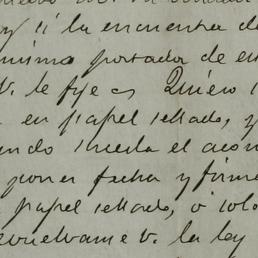 y si la encuentra de
mismo portador de es
V. le fije es Quiero
en papel sellado, y
ando inserta el acon
poner fecha y firma
papel sellado, o solo
evuelvame V. la ley